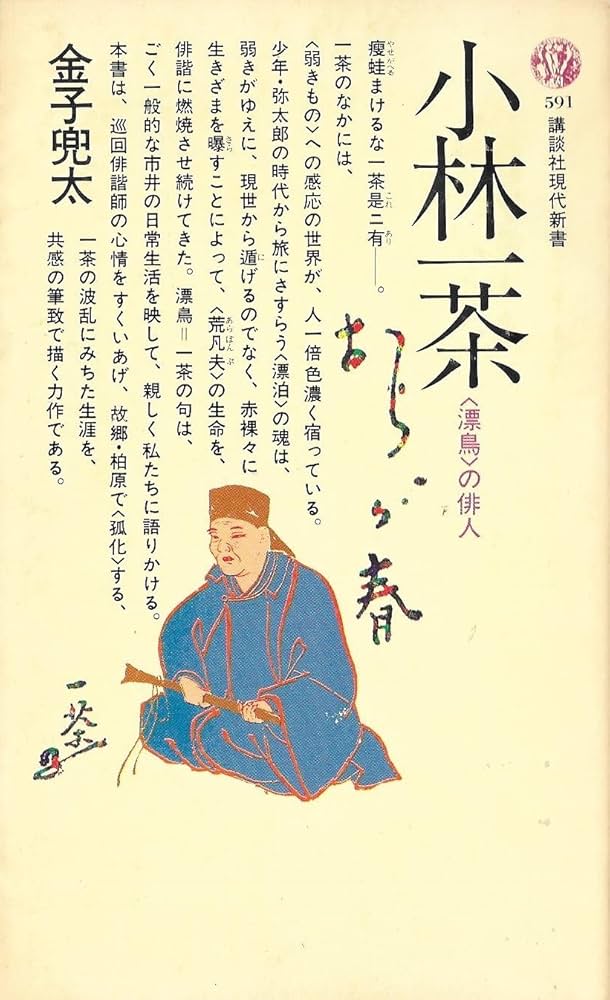 591
講談社現代新書
小林一茶
〈漂鳥〉の俳人
痩蛙まけるな一茶是ニ有──。
やせがへる
これ
あり
一茶のなかには、
〈弱きもの〉への感応の世界が、人一倍色濃く宿っている。
少年・弥太郎の時代から旅にさすらう〈漂泊〉の魂は、
弱きがゆえに、現世から遁げるのでなく、赤裸々に
に
生きざまを曝すことによって、〈荒凡夫〉の生命を、
さら
あらぼんぷ
俳諧に燃焼させ続けてきた。漂鳥=一茶の句は、
ごく一般的な市井の日常生活を映して、親しく私たちに語りかける。
本書は、巡回俳諧師の心情をすくいあげ、故郷・柏原で〈孤化〉する、
一茶の波乱にみちた生涯を、
共感の筆致で描く力作である。
金子兜太
おらが春
一茶